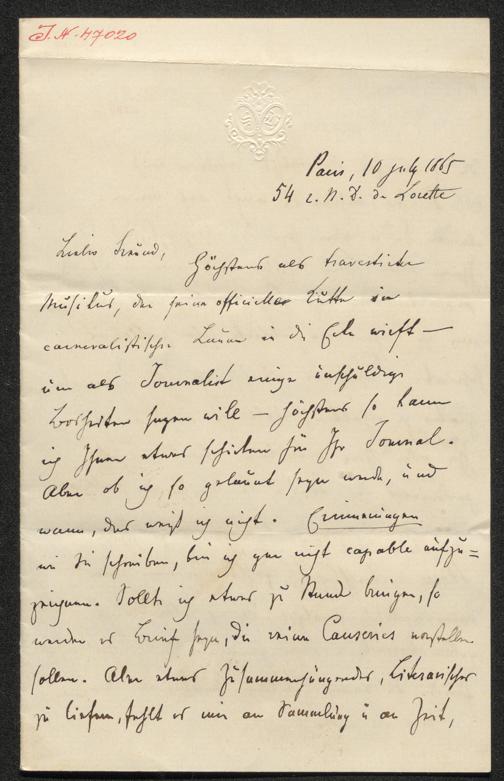 J.N. 47020
Paris, 10 July 1865
54 r. N. D. de Lorette
Lieber Freund, Höchstens als travestirter
Musikus, der seine officielle Kutte in
carnevalistischer Laune in die Ecke wirft —
um als Journalist einige unschuldige
Bosheiten sagen will — höchstens so kann
ich Ihnen etwas schicken für Ihr Journal.
Aber ob ich so gelaunt seyn werde, und
wann, das weiß ich nicht. Erinnerungen
wie Sie schreiben, bin ich gar nicht capable aufzu=
zeichnen. Sollte ich etwas zu Stande bringen, so
werden es Briefe seyn, die reine Causeries vorstellen
sollen. Aber etwas Zusammenhängendes, Literarisches
zu liefern, fehlt es mir an Sammlung u an Zeit,